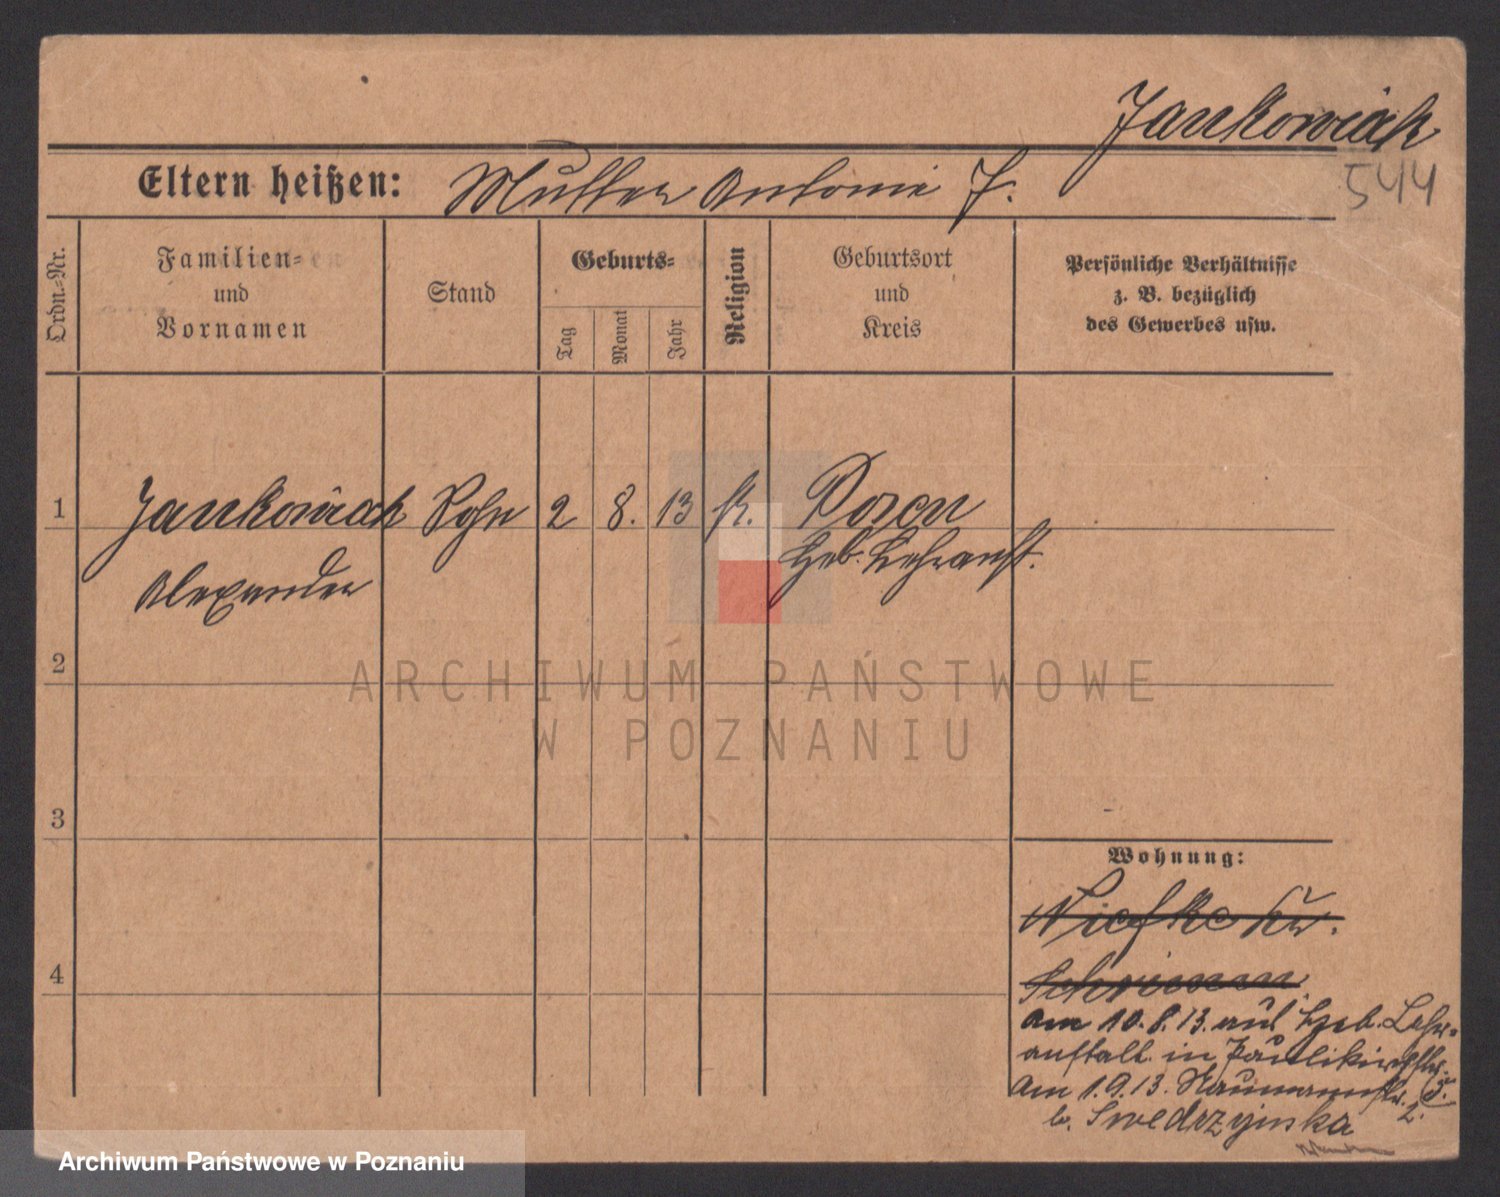 Jankowiak
544
Eltern heißen: Mutter Antonie J.
Ordn.-Nr.
Familien-
und
Vornamen
Stand
Geburts-
Tag
Monat
Jahr
Religion
Geburtsort
und
Kreis
Persönliche Verhältnisse
z. B. bezüglich
des Gewerbes usw.
1 Jankowiak Sohn 2 8. 13 k. Posen
Heb. Lehranst.
Alexander
2
ARCHIWUM PAŃSTWOWE
W POZNANIU
3
Wohnung:
4
am 10.8.13. aus Heb. Lehr-
anstalt in Paulikirchstr. 5.
am 1.9.13. Naumannstr. 2.
b. Swedrzyinka
Archiwum Państwowe w Poznaniu